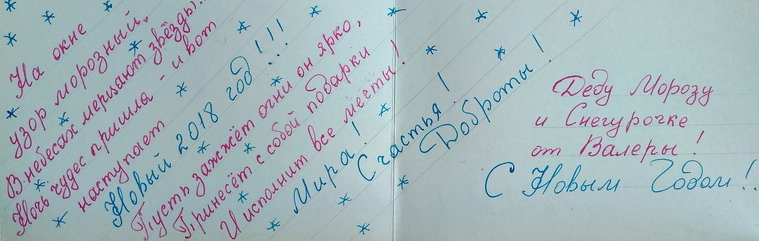 На окне
узор морозный.
В небесах мерцают звёзды...
Ночь чудес пришла - и вот
наступает
Новый 2018 год!!!
Пусть зажжёт огни он ярко,
Принесёт с собой подарки
И исполнит все мечты!
Мира! Счастья! Доброты!
Деду Морозу
и Снегурочке
от Валеры!
С Новым Годом!